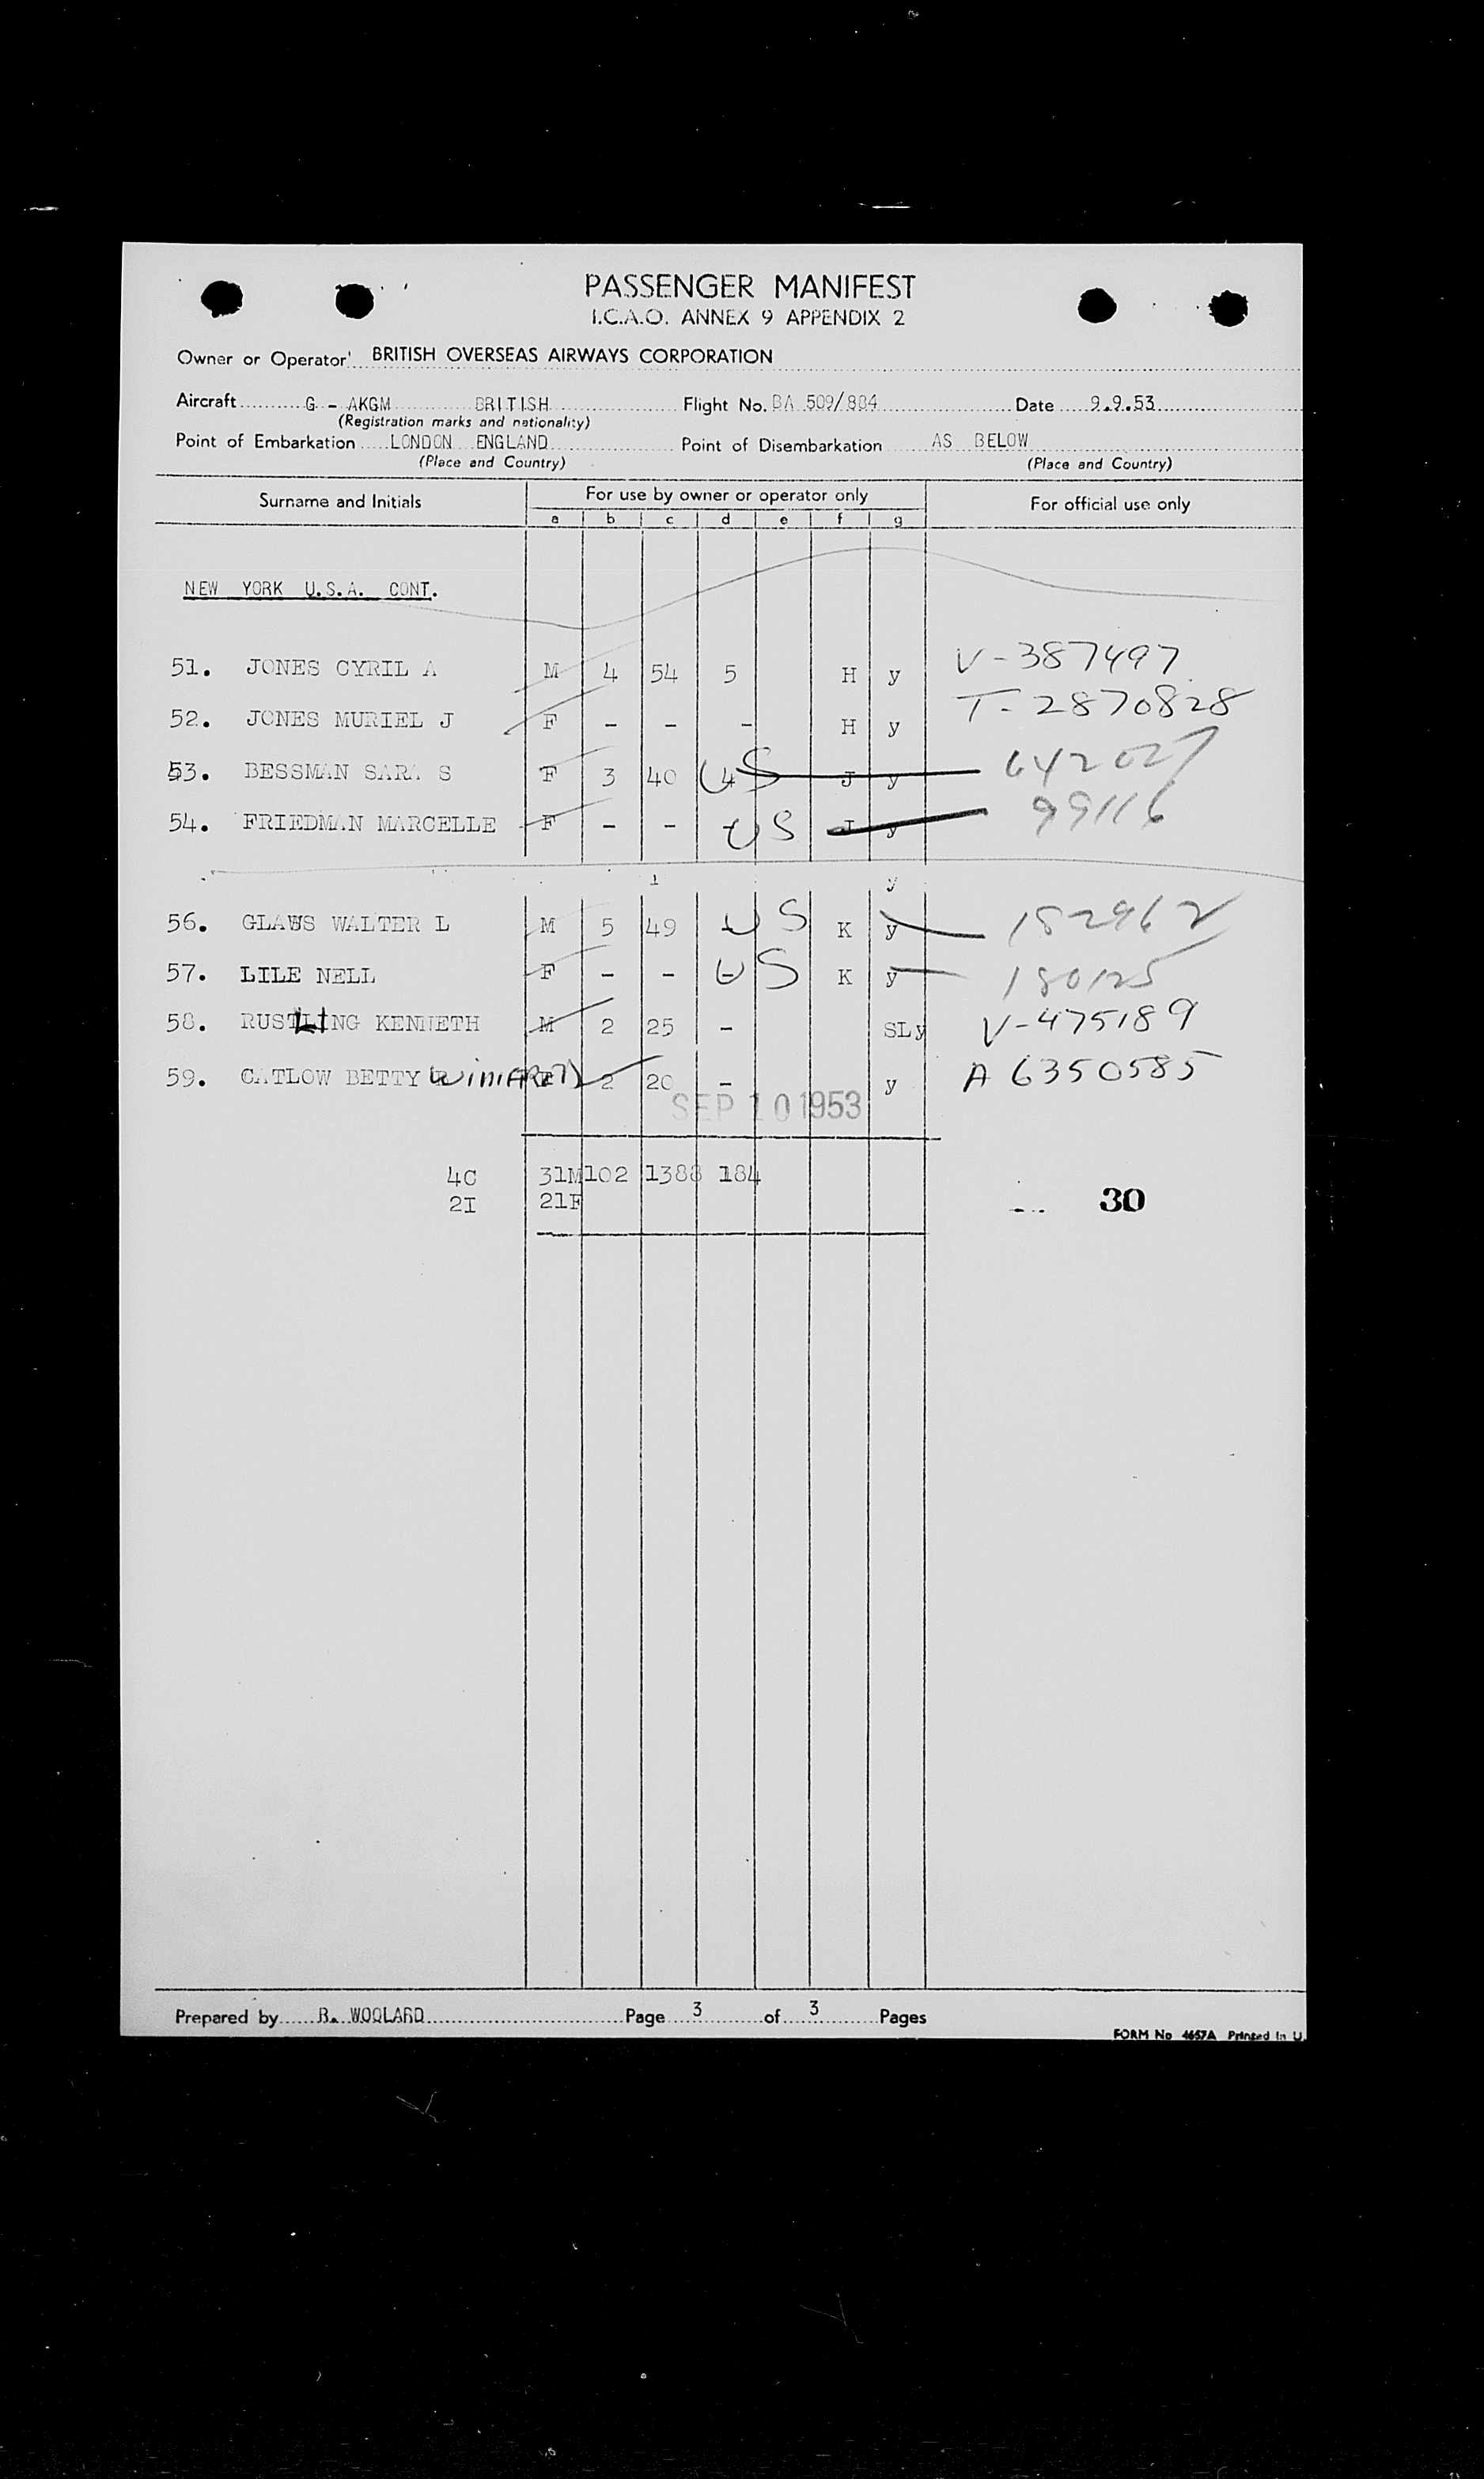 PASSENGER MANIFEST
I.C.A.O. ANNEX 9 APPENDIX 2
Owner or Operator BRITISH OVERSEAS AIRWAYS CORPORATION
Aircraft G - AKGM BRITISH Flight No. BA 509/884 Date 9.9.53
(Registration marks and nationality)
Point of Embarkation LONDON ENGLAND Point of Disembarkation AS BELOW
(Place and Country) (Place and Country)
Surname and Initials For use by owner or operator only For official use only
a b c d e f g
NEW YORK U.S.A. CONT.
51. JONES CYRIL A M 4 54 5 H y V-387497
52. JONES MURIEL J F - - - H y T-2870828
53. BESSMAN SARA S F 3 40 4 US J y 642027
54. FRIEDMAN MARCELLE F - - - US J y 99116
56. GLAWS WALTER L M 5 49 - US K y 182962
57. LILE NELL F - - - US K y 180125
58. RUSTLING KENNETH M 2 25 - SL y V-475189
59. CATLOW BETTY WINIFRED F 2 20 - y A 6350585
SEP 10 1953
4C 31M 102 1388 184
2I 21F 30
Prepared by R. WOOLARD Page 3 of 3 Pages
FORM No 4657A Printed in U